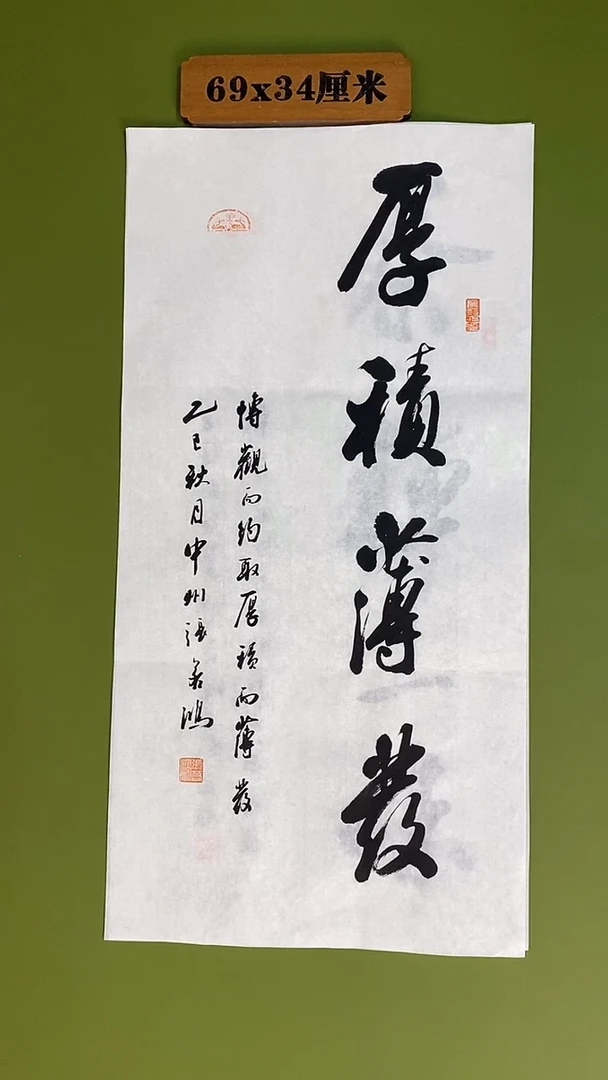 69x34厘米
厚積薄發
博觀而約取厚積而薄發
乙巳秋月中州張善鴻